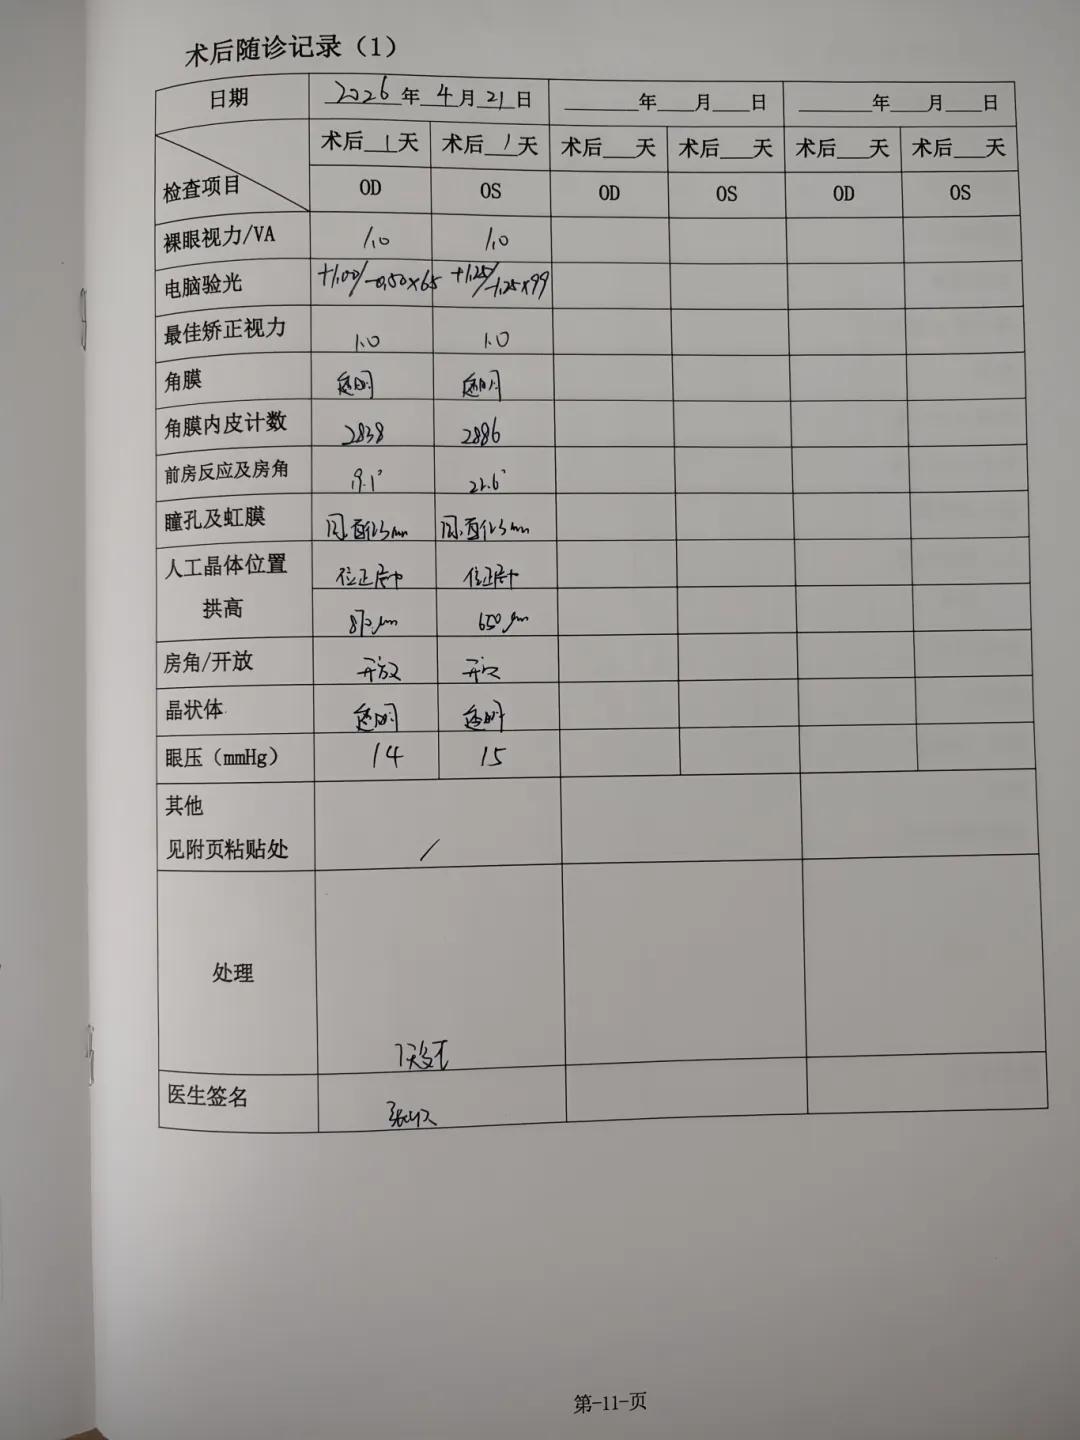 术后随诊记录（1）
日期 2026年 4月 21日 ___年___月___日 ___年___月___日
检查项目 术后 1 天 术后 1 天 术后___天 术后___天 术后___天 术后___天
OD OS OD OS OD OS
裸眼视力/VA 1.0 1.0
电脑验光 +1.00/-0.50×65 +1.25/-1.25×99
最佳矫正视力 1.0 1.0
角膜 透明 透明
角膜内皮计数 2838 2886
前房反应及房角 19.1° 21.6°
瞳孔及虹膜
人工晶体位置 位正居中 位正居中
拱高 870μm 650μm
房角/开放 开放 开放
晶状体 透明 透明
眼压（mmHg） 14 15
其他
见附页粘贴处 /
处理
7天复查
医生签名
第-11-页